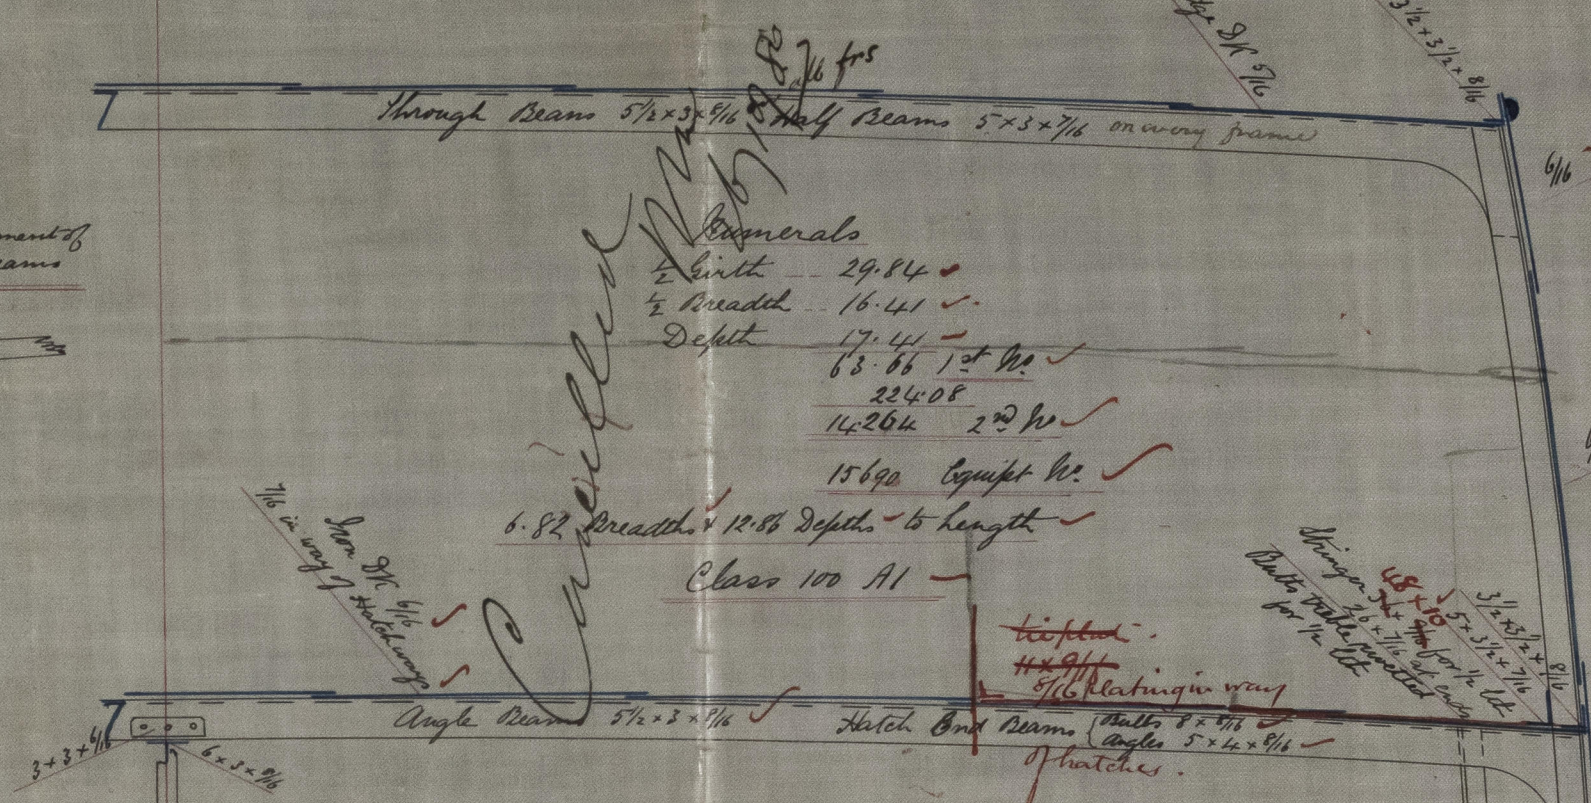 dge DK 5/16
3½ × 3½ × 8/16
/16 frs
Through Beams 5½ × 3 × 8/16 Half Beams 5 × 3 × 7/16 on every frame
6/16
ment of
eams
Numerals
½ Girth -- 29.84
½ Breadth -- 16.41
Depth 17.41
63.66 1st No
224.08
14264 2nd No
15690 Equipt No.
6.82 Breadths & 12.86 Depths to Length
Class 100 A1
Cancelled
Iron DK 6/16
7/16 in way of Hatchways
Stringer 48 × 10
for ½ Lt
26 × 7/16 at ends
Butts treble rivetted
for ½ Lt
3½ × 3½ × 8/16
5 × 3½ × 7/16
tieplate
11 × 9/16
8/16 Plating in way
of hatches.
Angle Beams 5½ × 3 × 8/16
Hatch End Beams { Bulbs 8 × 8/16
Angles 5 × 4 × 8/16
3 × 3 × 6/16
6 × 3 × 8/16